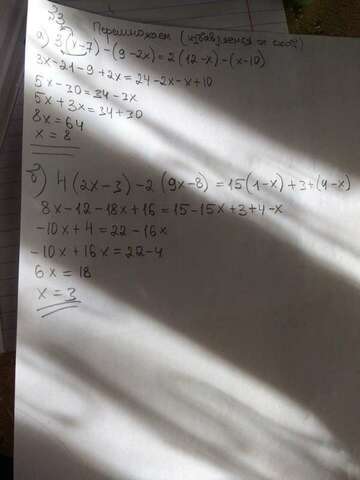 33
Перемножаем (избавляемся от скоб)
а) 3(x-7)-(9-2x)=2(12-x)-(x-10)
3x-21-9+2x=24-2x-x+10
5x-30=34-3x
5x+3x=34+30
8x=64
x=8
б) 4(2x-3)-2(9x-8)=15(1-x)+3+(4-x)
8x-12-18x+16=15-15x+3+4-x
-10x+4=22-16x
-10x+16x=22-4
6x=18
x=3